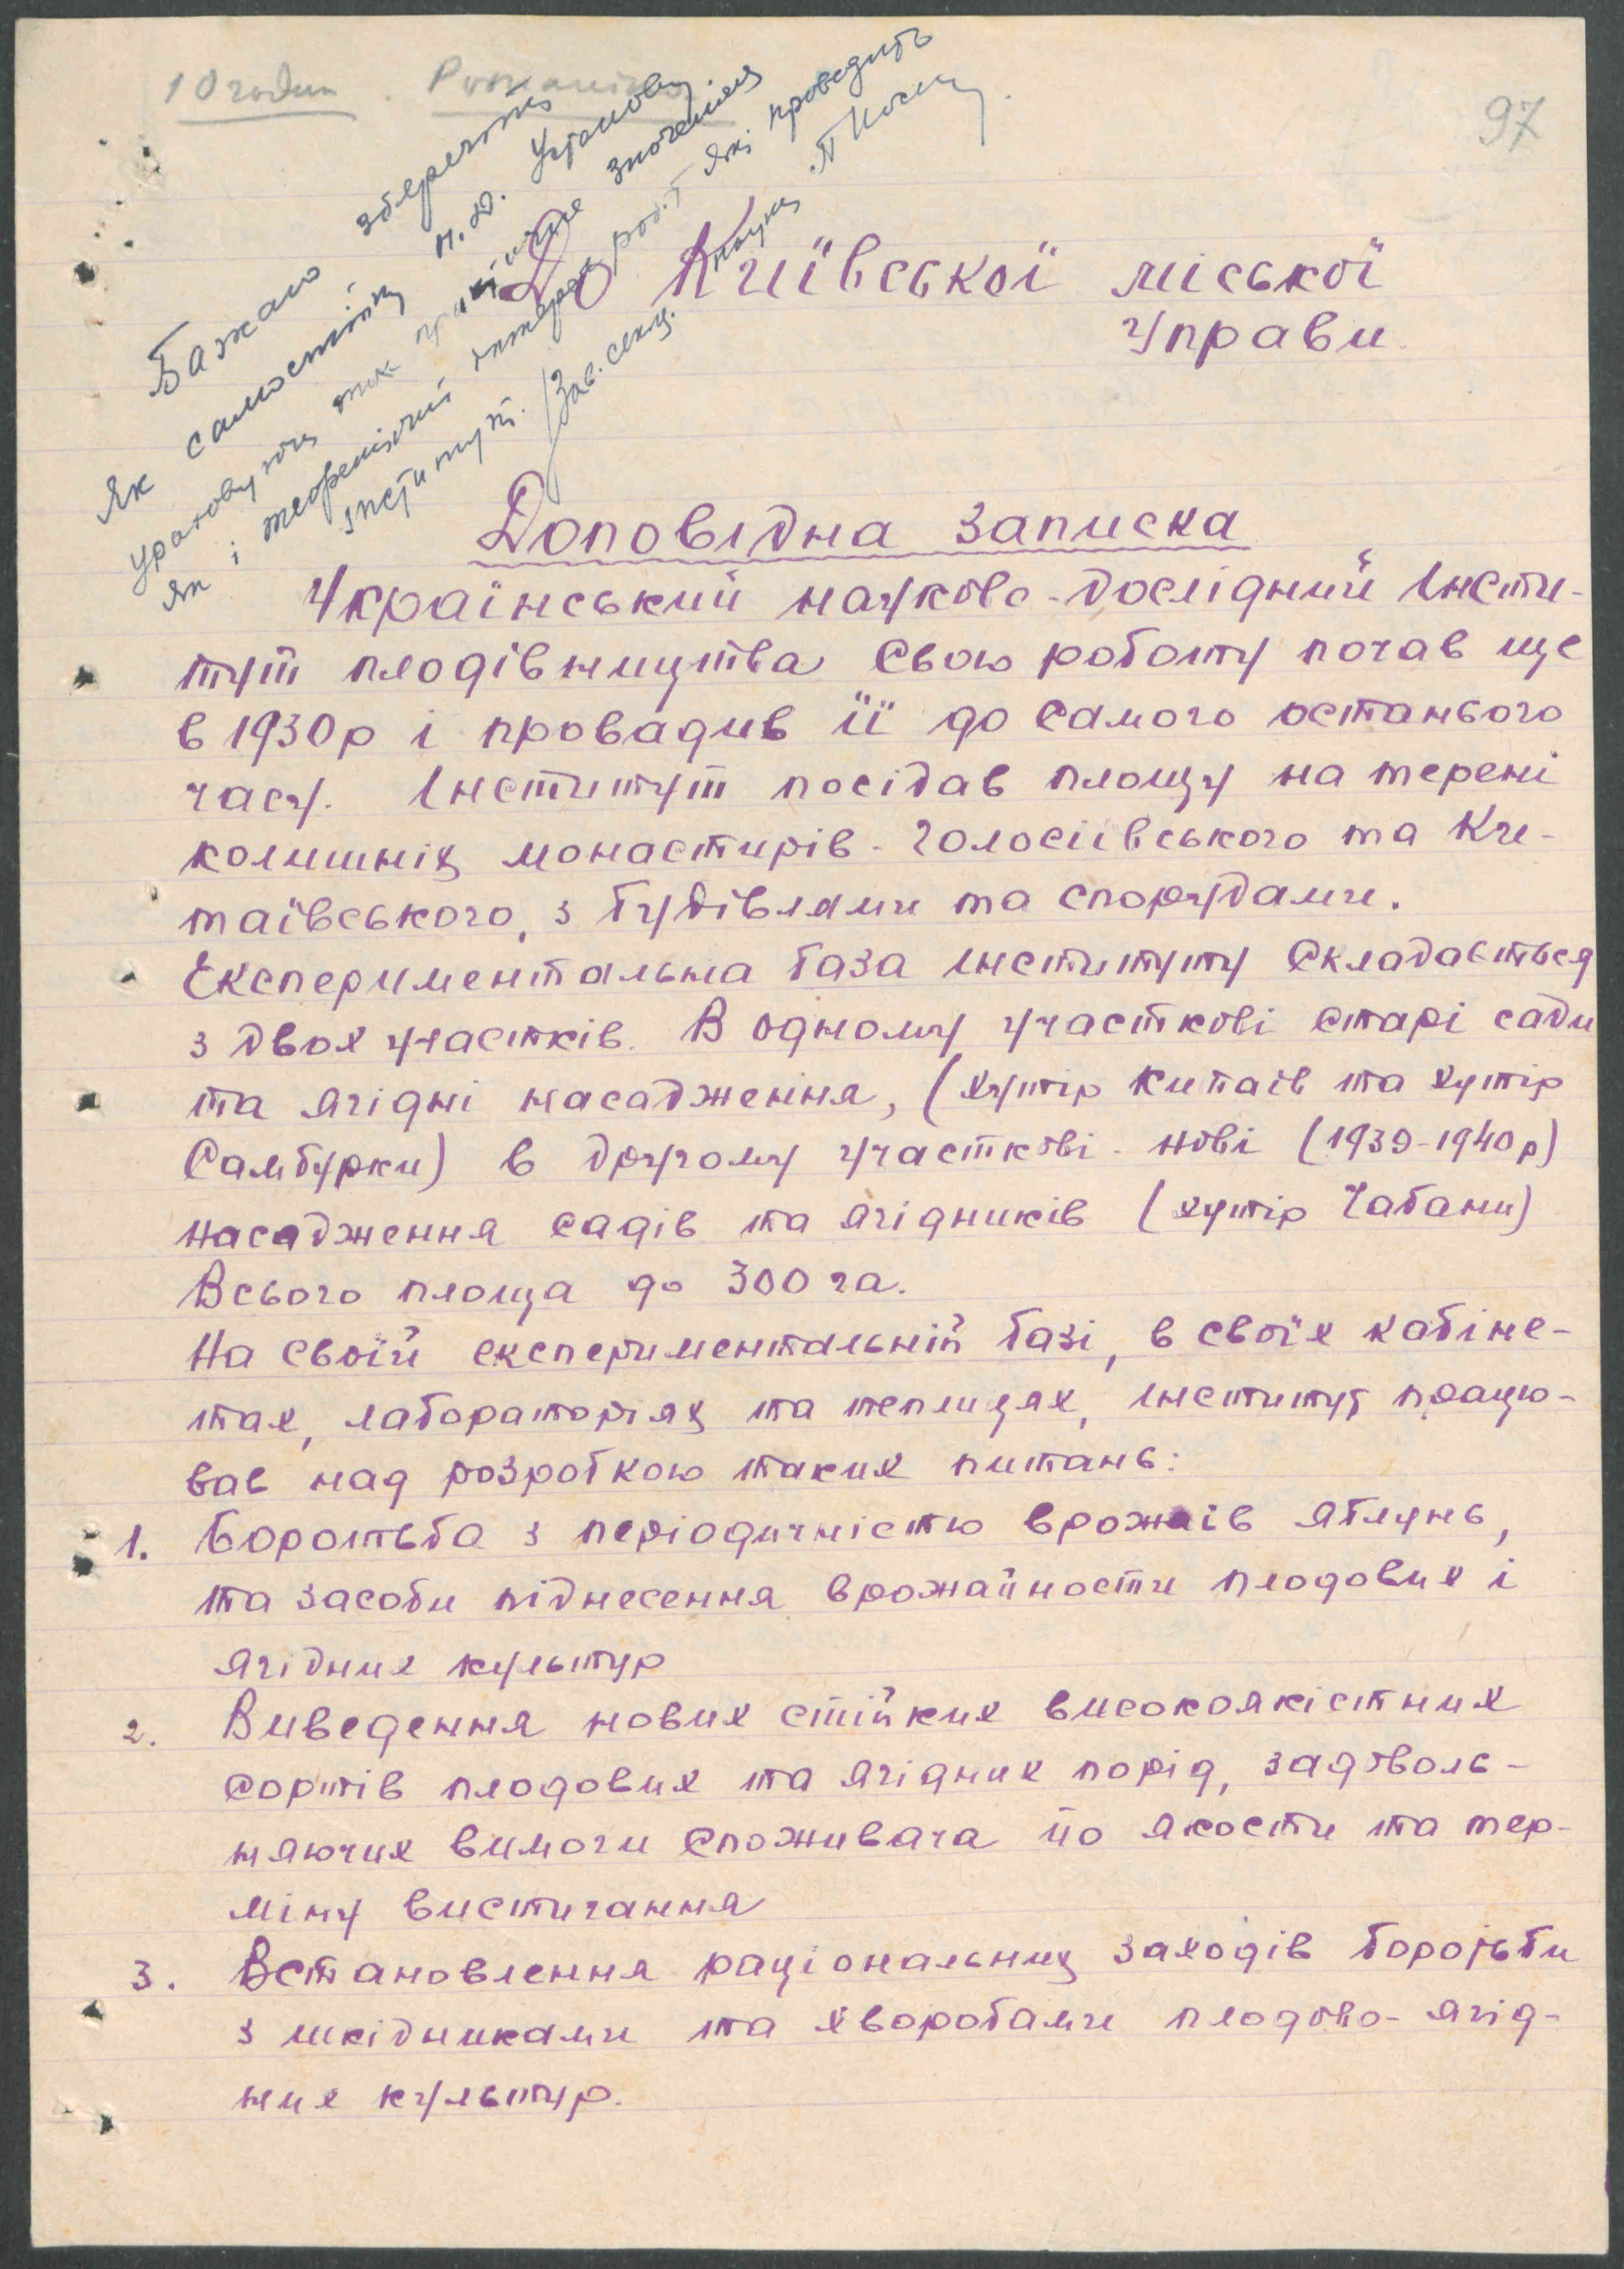 10 годин.
97
Бажано зберегти
як самостійну н.д. установу
ураховуючи таке практичне значення
як і теоретичний интерес робіт які проводить
інститут. Зав. секц. науки
До Київської міської
Управи.
Доповідна записка
Український науково-дослідний Інсти-
тут плодівництва свою роботу почав ще
в 1930р і провадив її до самого останього
часу. Інститут посідав площу на терені
колишніх монастирів - Голосіївського та Ки-
таївського, з будівлями та спорудами.
Експериментальна база Інституту складається
з двох участків. В одному участкові старі сади
та ягідні насадження, (хутір Китаїв та хутір
Самбурки) в другому участкові - нові (1939-1940р)
насадження садів та ягідників (хутір Чабани)
Всього площа до 300 га.
На своїй експериментальній базі, в своїх кабіне-
тах, лабораторіях та теплицях, Інститут працю-
вав над розробкою таких питань:
1. Боротьба з періодичністю врожаїв яблунь,
та засоби піднесення врожайности плодових і
ягідних культур
2. Виведення нових стійких високоякістних
сортів плодових та ягідних порід, задоволь-
няючих вимоги споживача по якости та тер-
міну вистигання
3. Встановлення раціональних заходів боротьби
з шкідниками та хворобами плодово-ягід-
них культур.